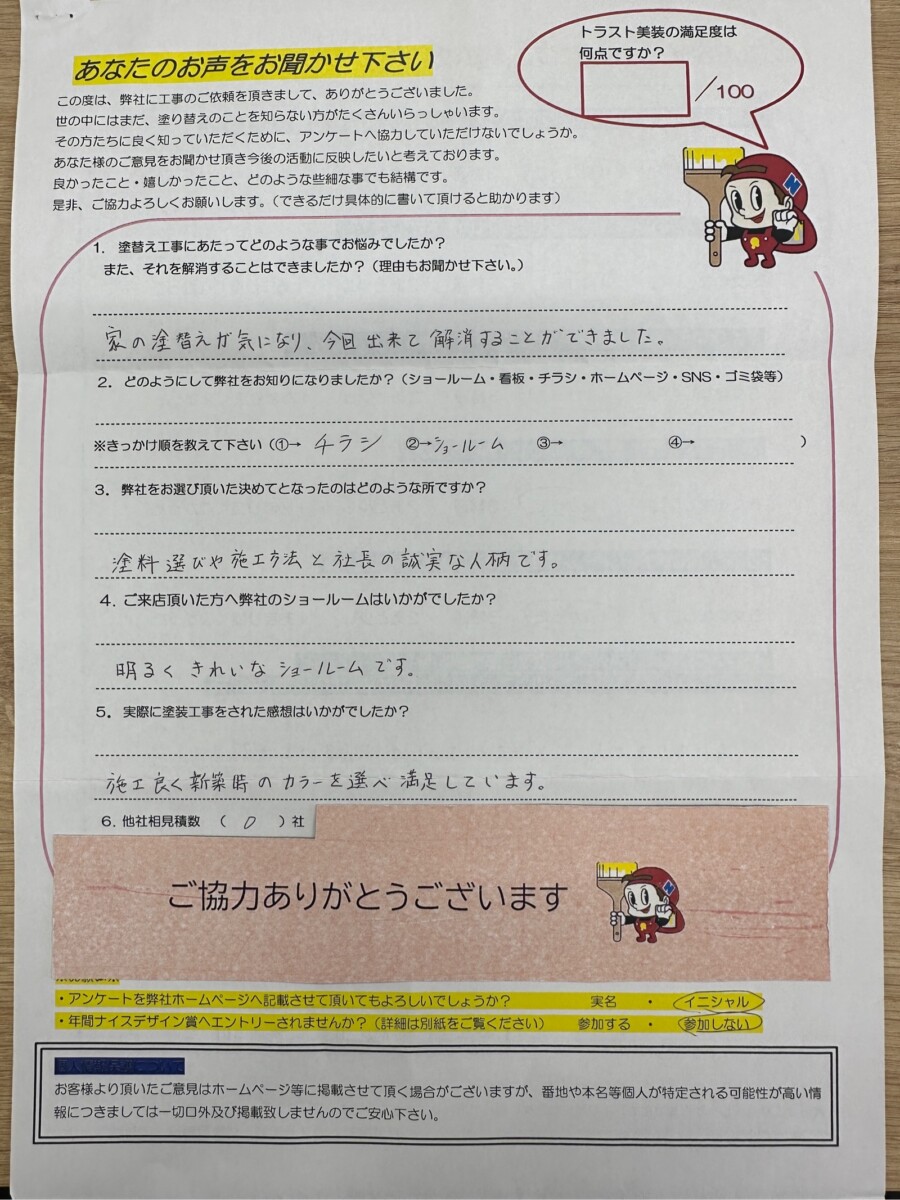 トラスト美装の満足度は
何点ですか？
／100
あなたのお声をお聞かせ下さい
この度は、弊社に工事のご依頼を頂きまして、ありがとうございました。
世の中にはまだ、塗り替えのことを知らない方がたくさんいらっしゃいます。
その方たちに良く知っていただくために、アンケートへ協力していただけないでしょうか。
あなた様のご意見をお聞かせ頂き今後の活動に反映したいと考えております。
良かったこと・嬉しかったこと、どのような些細な事でも結構です。
是非、ご協力よろしくお願いします。（できるだけ具体的に書いて頂けると助かります）
N
1．塗替え工事にあたってどのような事でお悩みでしたか？
また、それを解消することはできましたか？（理由もお聞かせ下さい。）
家の塗替えが気になり、今回出来て解消することができました。
2．どのようにして弊社をお知りになりましたか？（ショールーム・看板・チラシ・ホームページ・SNS・ゴミ袋等）
※きっかけ順を教えて下さい（①→ チラシ ②→ショールーム ③→ ④→ ）
3．弊社をお選び頂いた決めてとなったのはどのような所ですか？
塗料選びや施工方法と社長の誠実な人柄です。
4．ご来店頂いた方へ弊社のショールームはいかがでしたか？
明るくきれいなショールームです。
5．実際に塗装工事をされた感想はいかがでしたか？
施工良く新築時のカラーを選べ満足しています。
6．他社相見積数 （ 0 ）社
ご協力ありがとうございます
N
・アンケートを弊社ホームページへ記載させて頂いてもよろしいでしょうか？ 実名 ・ イニシャル
・年間ナイスデザイン賞へエントリーされませんか？（詳細は別紙をご覧ください） 参加する ・ 参加しない
お客様より頂いたご意見はホームページ等に掲載させて頂く場合がございますが、番地や本名等個人が特定される可能性が高い情
報につきましては一切口外及び掲載致しませんのでご安心下さい。